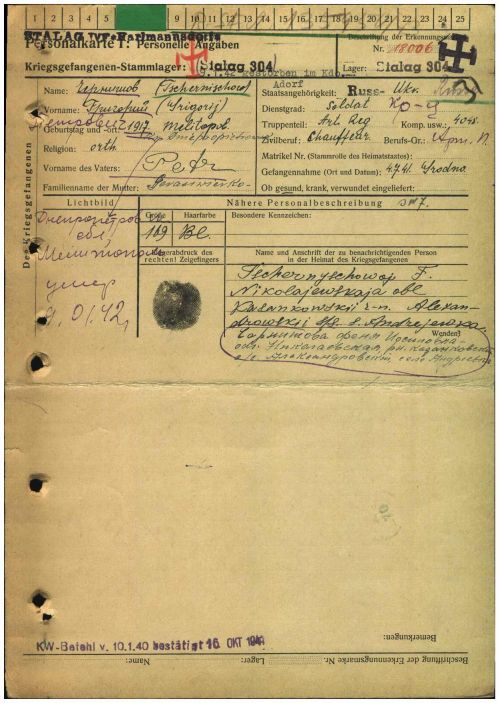 1 2 3 4 5 6 7 8 9 10 11 12 13 14 15 16 17 18 19 20 21 22 23 24 25
STALAG IV F Hartmannsdorf
Personalkarte I: Personelle Angaben
Kriegsgefangenen-Stammlager: Stalag 304
Beschriftung der Erkennungsmarke
Nr. 18006
Lager: Stalag 304
9.1.42 gestorben im Kdo.
Adorf
Des Kriegsgefangenen
Name: Чернишов (Tschernischow)
Vorname: Григорий (Grigorij)
Петрович
Geburtstag und -ort: 1917 Melitopol
Religion: orth
Vorname des Vaters: Petr
Familienname der Mutter:
Staatsangehörigkeit: Russ- Ukr.
Dienstgrad: Soldat
Truppenteil: Art. Reg Komp. usw.:
Zivilberuf: Chauffeur Berufs-Gr.:
Matrikel Nr. (Stammrolle des Heimatstaates):
Gefangennahme (Ort und Datum): 4.7.41. Grodno
Ob gesund, krank, verwundet eingeliefert:
Lichtbild
Nähere Personalbeschreibung
Größe
Haarfarbe
Besondere Kennzeichen:
169
Bl.
Днепропетров
обл,
Мелитополь
умер
9.01.42,
Fingerabdruck des
rechten! Zeigefingers
Name und Anschrift der zu benachrichtigenden Person
in der Heimat des Kriegsgefangenen
Tschernyschowa F.
Nikolajewskaja obl
Kasankowskij r-n. Alexan-
drowskij s. Andrejewka.
Wenden!
Чернишова Феня
обл. Николаевская, рн. Казанковский
с/с. Александровский, село Андреевка
Bemerkungen:
KW-Befehl v. 10.1.40 bestätigt 16. OKT 194
Name:
Lager:
Beschriftung der Erkennungsmarke Nr.